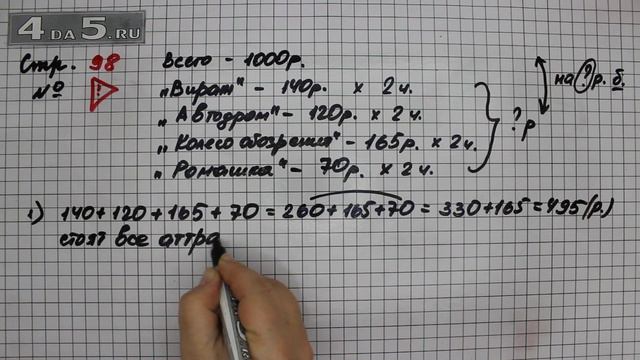 4DA5.RU
Стр. 98 Всего - 1000р.
№ ? „Вираж" - 140р. х 2ч.
„Автодром" - 120р. х 2ч.
„Колесо обозрения" - 165р. х 2ч.
„Ромашка" - 70р. х 2ч.
? р
на ? р. б.
1) 140+120+165+70=260+165+70=330+165=495(р.)
стоят все аттра